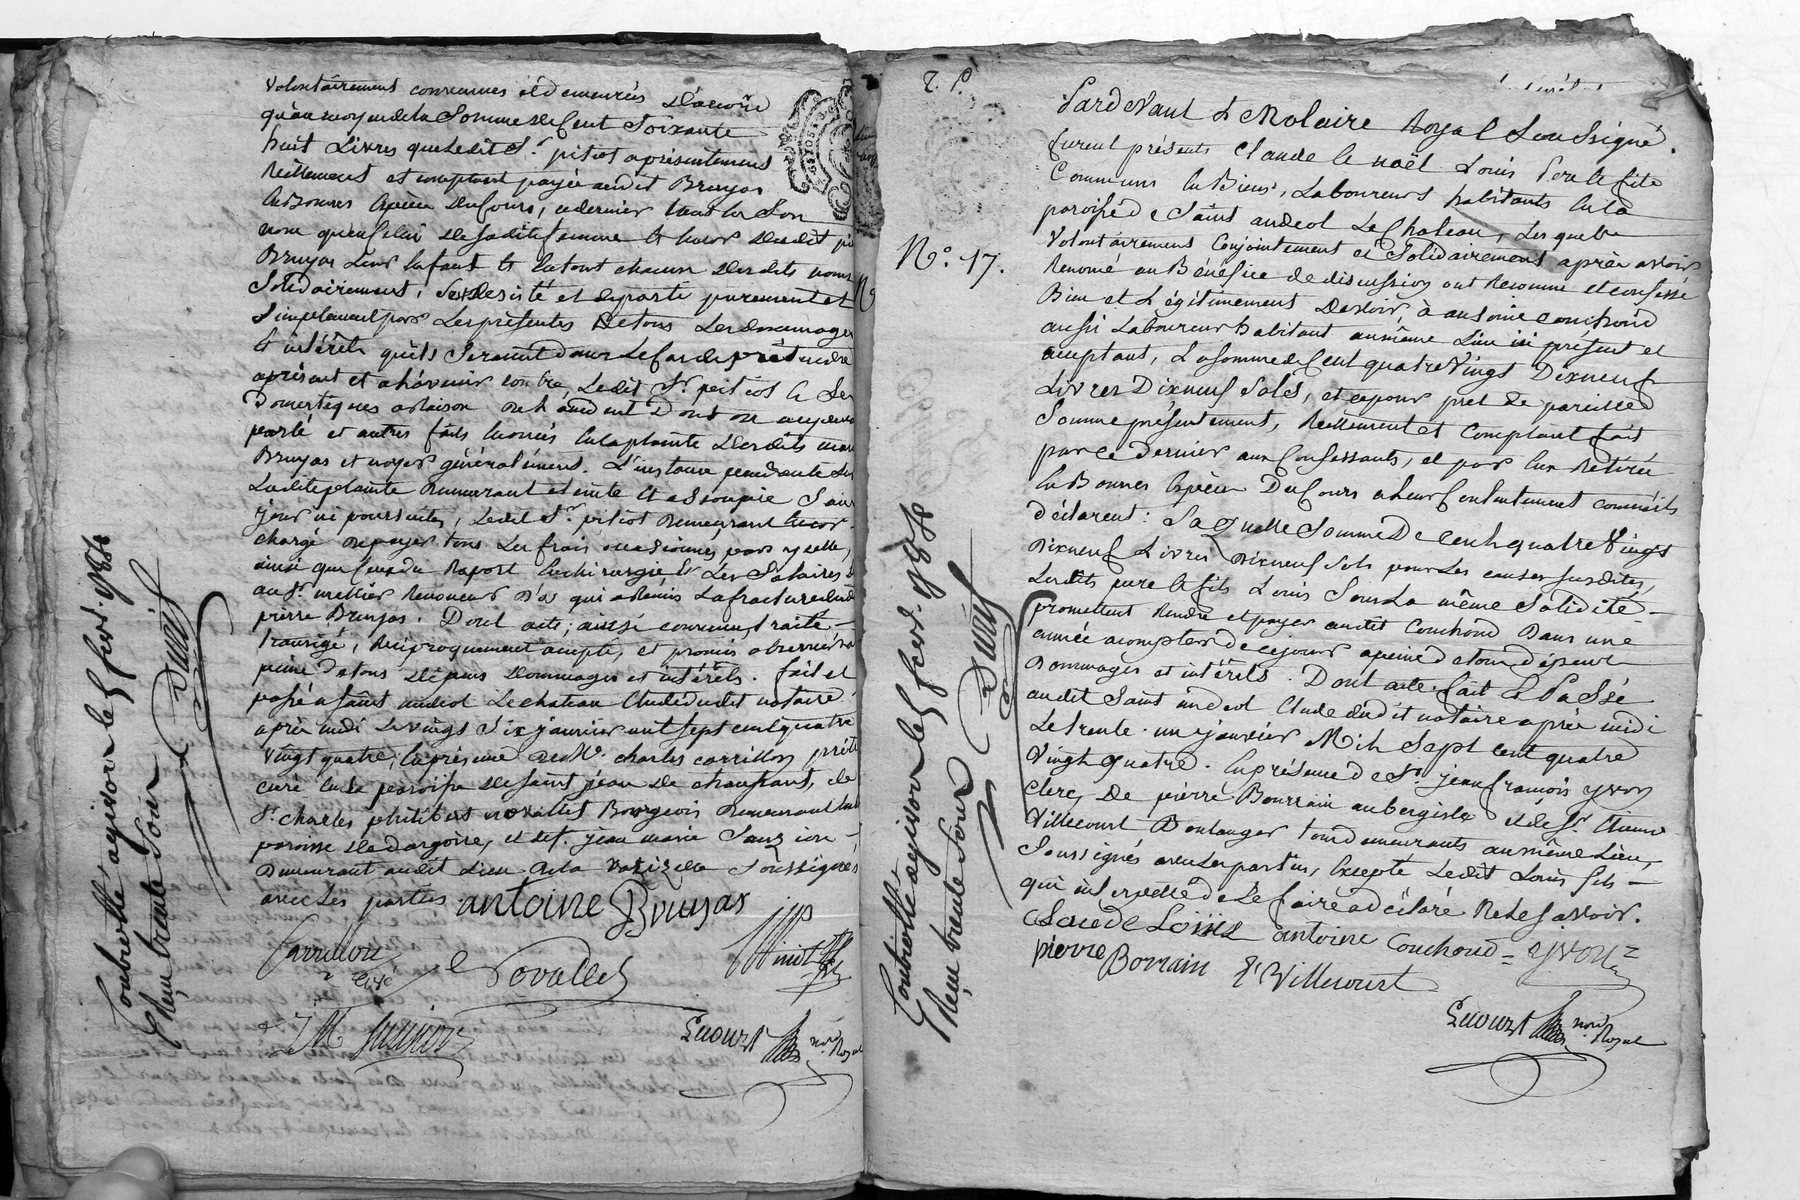 volontairement convenues et demeurées d'accord
qu'au moyen de la somme de Cent Soixante
huit Livres que Ledit Sr. pitiot a présentement
Réellement et comptant payée audit Bruyas
en Bonnes Espèces du Cours, ce dernier tant en Son
nom qu'en celui de sadite femme et encor dudit
Bruyas Leur enfant et en tout chacun desdits noms
Solidairement, s'est désisté et départi purement et
Simplement par Les présentes de tous Les dommages
et intérêts qu'ils seraient dans Le Cas de prétendre
a présent et a L'avenir contre Ledit Sr. pitiot et Ses
Domestiques a raison de L'accident Dont
parlé et autres faits énoncés en la plainte desdits
Bruyas et noyer généralement. L'instance pendante sur
Ladite plainte demeurant éteinte et assoupie Sans
jour ni poursuites, Ledit Sr. pitiot demeurant encor
chargé de payer tous Les frais occasionnés par ycelle,
ainsi que ceux du Raport en chirurgie et Les Salaires
au Sr. mellier Renoueur d'os qui a Remis La fracture dudit
pierre Bruyas. Dont acte; ainsi convenu, traité
transigé, Réciproquement accepté, et promis observer à
peine de tous dépens dommages et intérêts. fait et
passé a saint andeol Le chateau Etude dudit notaire
après midi Le vingt Six janvier mil sept cent quatre
Vingt quatre, en présence de Mr. charles carrillon prêtre
curé de la paroisse de saint jean de chaussant, de
Sr. charles philibert novallet Bourgeois demeurant en la
paroisse de dargoire, et de Sr. jean marie
Demeurant audit Lieu Soussignés
avec Les parties. antoine Bruyas
Carrillon
Curé
Novallet
Pitiot
J M
Lucourt nore. Royal
Contrôlé à givors le 5 fevr. 1784
Reçu trente sols
Duvil
T. P.
N.° 17.
Pardevant Le Notaire Royal Soussigné.
furent présents Claude et noël Louis Père et fils
Communs en Biens, Laboureurs habitants en la
paroisse de Saint andeol Le Chateau, Lesquels
Volontairement Conjointement et Solidairement après avoir
Renoncé au Bénéfice de discussion ont Reconnu et confessé
Bien et Légitimement Devoir à antoine couchoud
aussi Laboureur habitant au même Lieu ici présent et
acceptant, La somme de Cent quatre Vingt Dixneuf
Livres Dixneuf Sols, et ce pour prêt de pareille
Somme présentement, Réellement et Comptant fait
par ce Dernier aux Confessants, et par Eux Retirée
en Bonnes Espèces Du Cours a Leur Contentement comme ils
déclarent: Laquelle Somme De Cent quatre Vingt
Dixneuf Livres Dixneuf Sols pour Les causes susdites,
Lesdits père et fils Louis Sous La même Solidité
promettent Rendre et payer audit Couchoud Dans une
année a compter de ce jour a peine de tous dépens
Dommages et intérêts. Dont acte fait et Passé
audit Saint andeol Etude dudit notaire après midi
Le trente un janvier Mil Sept Cent quatre
Vingt quatre. En présence de Sr. jean françois yvon
Clerc, De pierre Bourrain aubergiste et de Sr. Etienne
Villecourt Boulanger tous demeurants au même Lieu,
Soussignés avec Les parties, Excepté Ledit Louis fils
qui interpellé de Le faire a déclaré Ne Le savoir.
Claude Louis antoine Couchoud yvon
pierre Borrain E Villecourt
Lucourt nore. Royal
Contrôlé à givors le 5 fevr. 1784
Reçu trente sols
Duvil